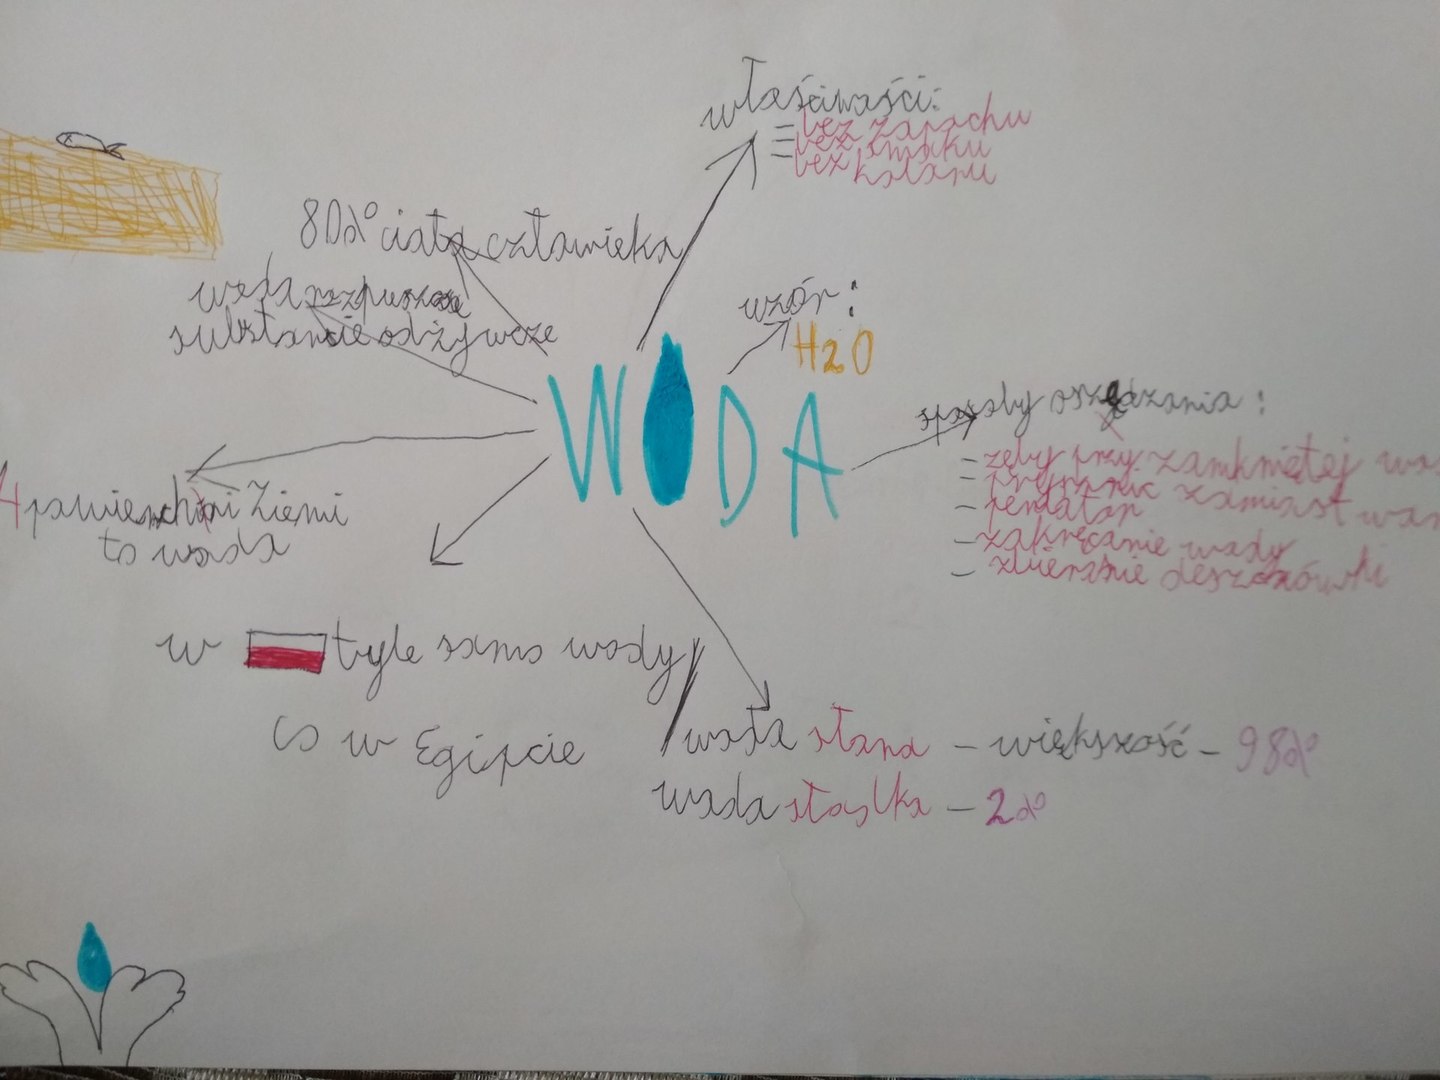 właściwości:
- bez zapachu
- bez smaku
- bez koloru
80% ciała człowieka
woda rozpuszcza
substancje odżywcze
wzór:
H2O
WODA
sposoby oszczędzania:
- zęby przy zamkniętej
- prysznic zamiast
- perlator
- zakręcanie wody
- zbieranie deszczówki
4 powierzchni Ziemi
to woda
w tyle samo wody
co w Egipcie
woda słona - większość - 98%
woda słodka - 2%